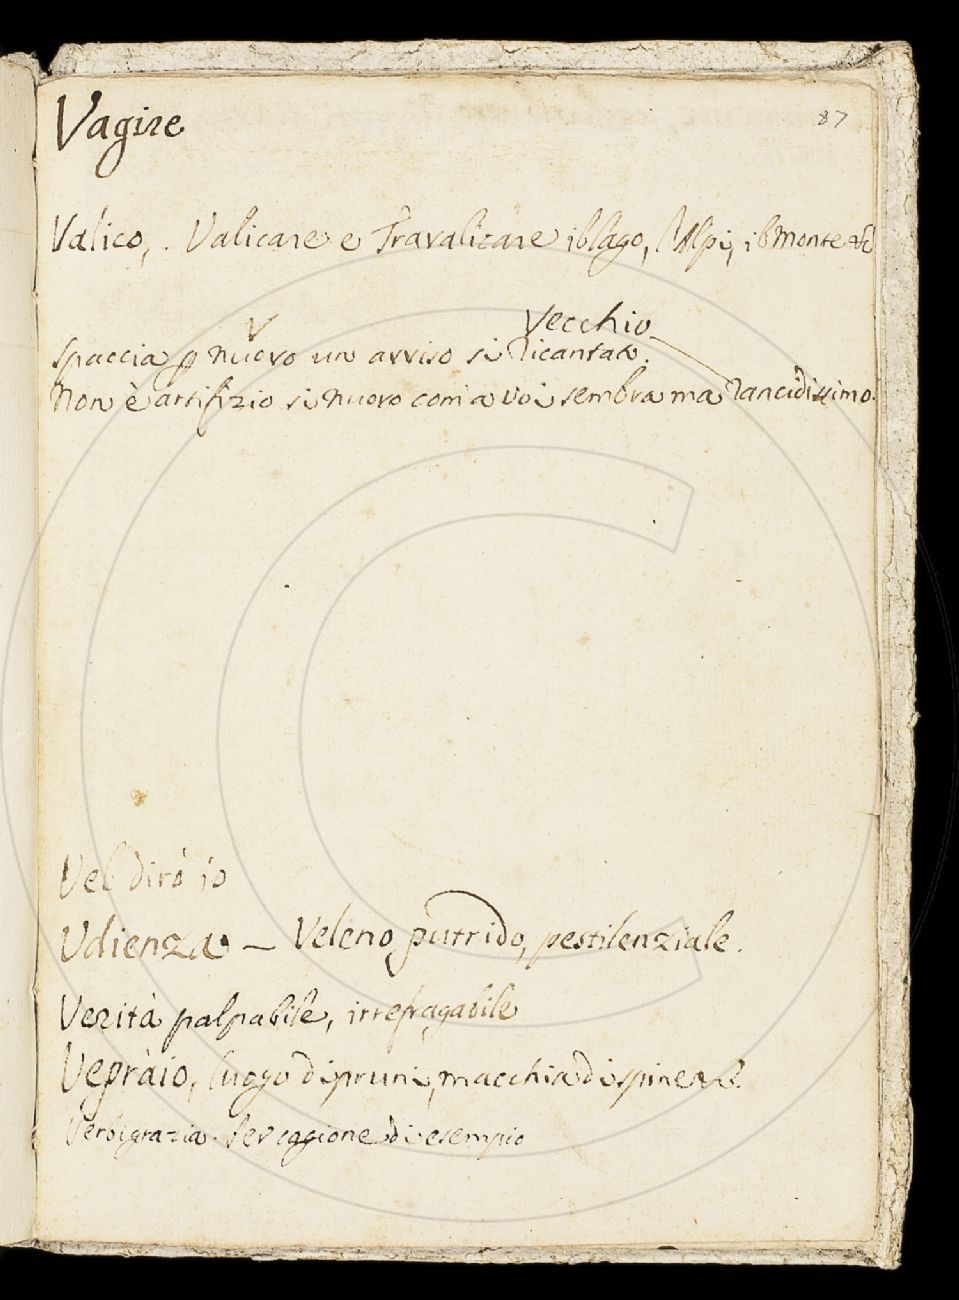 87
Vagire
Valico, . Valicare e Travalicare il lago, l'Alpi, il Monte &c
Vecchio
V
spaccia p nuovo un avviso sì ricantato.
Non è artifizio sì nuovo com'a voi sembra ma rancidissimo.
Vel dirò io
Udienza — Veleno putrido, pestilenziale.
Verità palpabile, irrefragabile
Vepràio, luogo di pruni, macchia di spine &c.
Verbigrazia. Per cagione di esempio